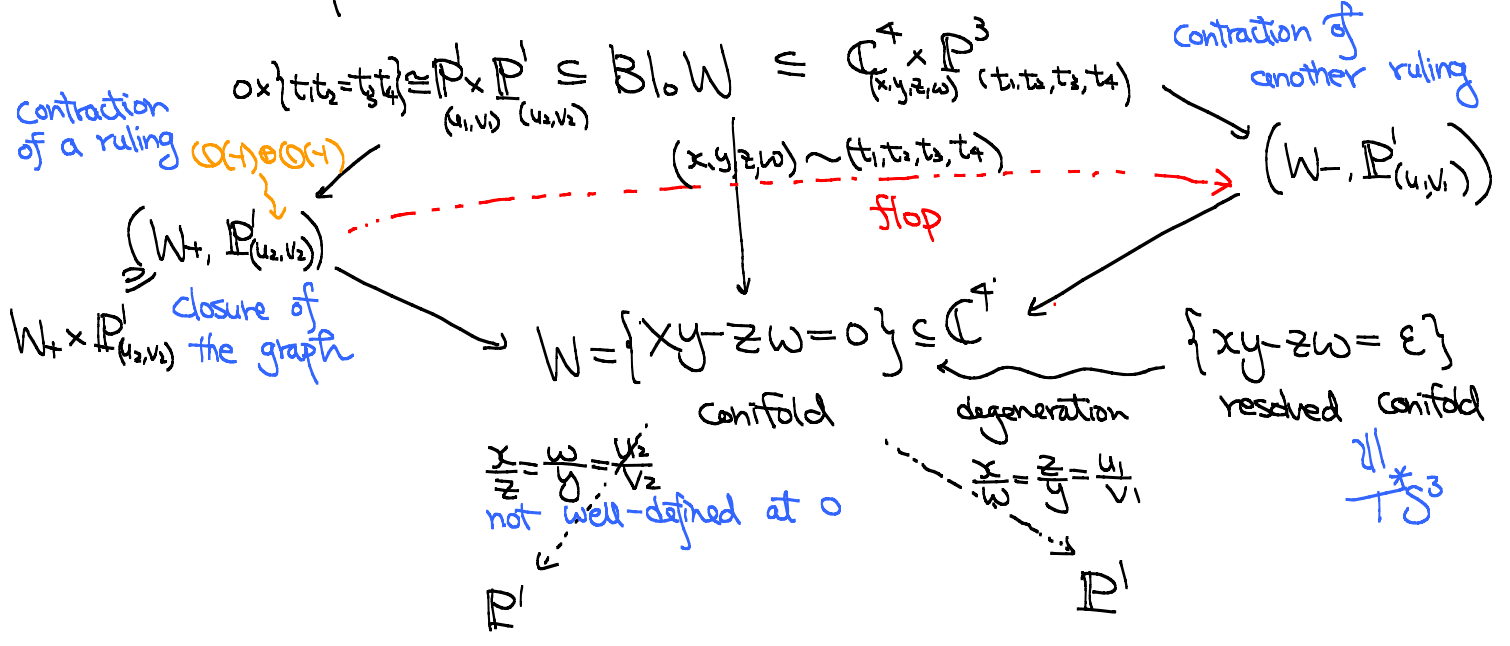 0×{t₁t₂=t₃t₄}≅ℙ¹×ℙ¹ ⊆ Bl₀W ⊆ ℂ⁴×ℙ³
(u₁,v₁) (u₂,v₂) (x,y,z,w) (t₁,t₂,t₃,t₄)
contraction of another ruling
contraction
of a ruling
O(-1)⊕O(-1)
(x,y,z,w)~(t₁,t₂,t₃,t₄)
(W-, ℙ¹(u₁,v₁))
flop
(W+, ℙ¹(u₂,v₂))
W+ × ℙ¹(u₂,v₂)
closure of
the graph
W={xy-zw=0}⊆ℂ⁴
{xy-zw=ε}
conifold
degeneration
resolved conifold
x/z=w/y=u₂/v₂
x/w=z/y=u₁/v₁
T*S³
not well-defined at 0
ℙ¹
ℙ¹